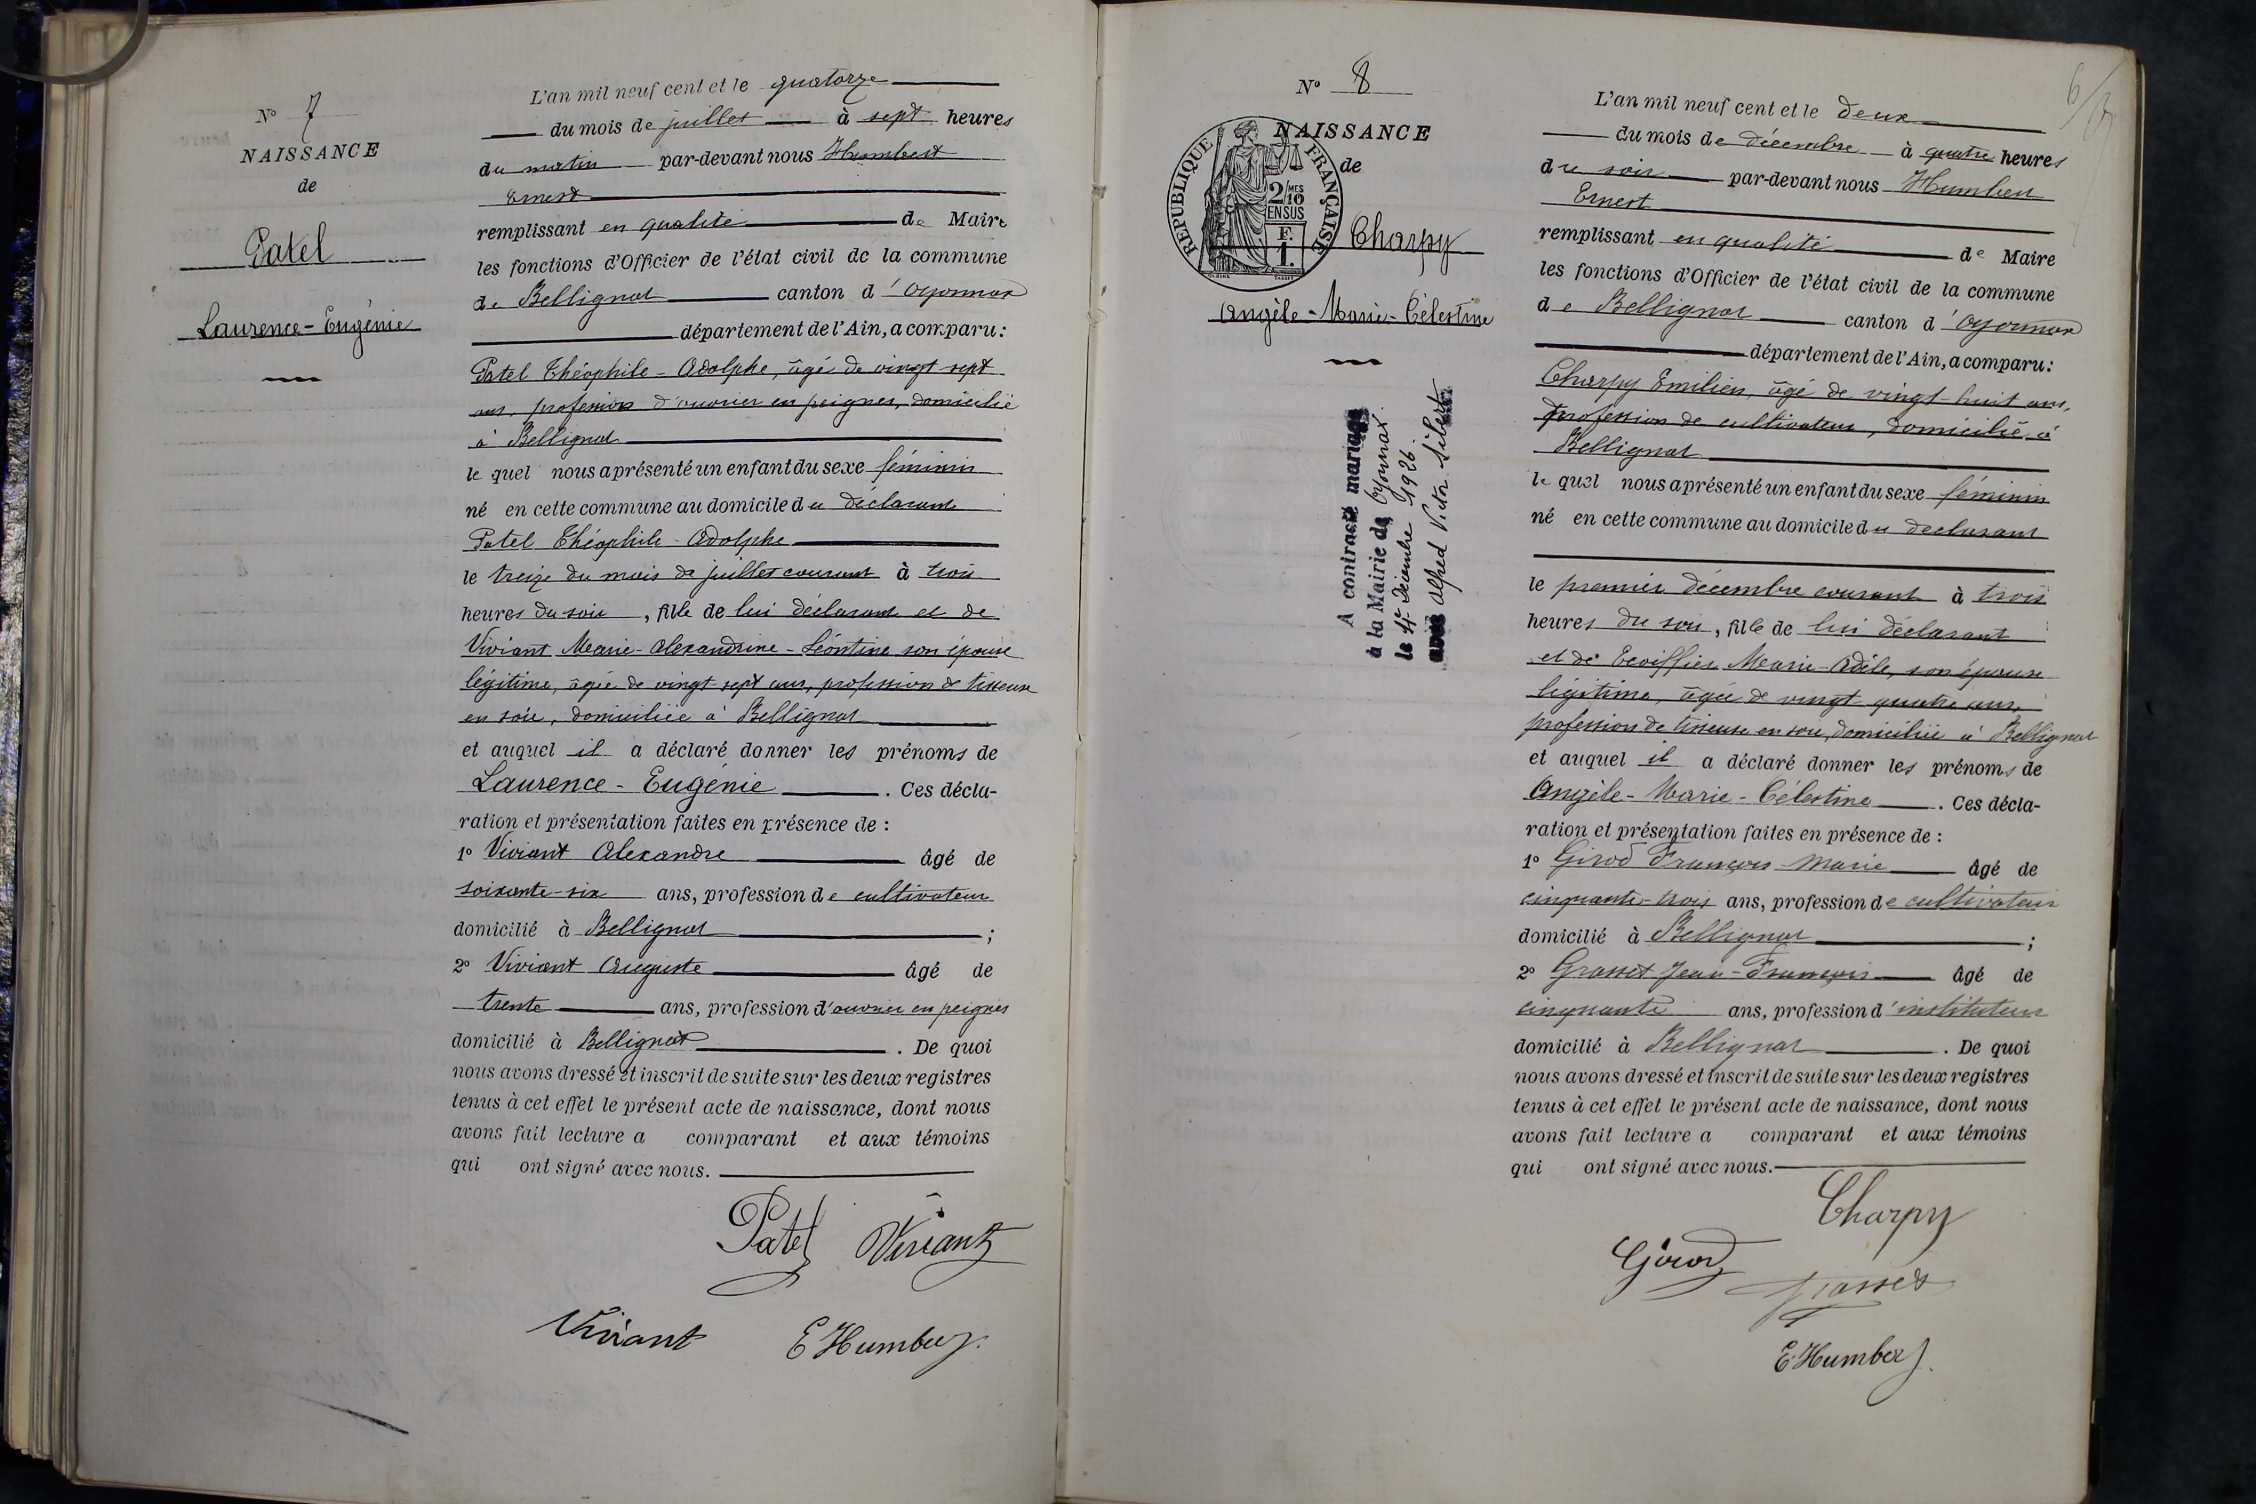 N° 7
NAISSANCE
de
Patel
Laurence-Eugénie
L'an mil neuf cent et le quatorze
du mois de juillet à sept heures
du matin par-devant nous Humbert
Ernest
remplissant en qualité de Maire
les fonctions d'Officier de l'état civil de la commune
de Bellignat canton d'Oyonnax
département de l'Ain, a comparu:
Patel Théophile-Adolphe, âgé de vingt sept
ans, profession d'ouvrier en peignes, domicilié
à Bellignat
le quel nous a présenté un enfant du sexe féminin
né en cette commune au domicile du déclarant
Patel Théophile-Adolphe
le treize du mois de juillet courant à trois
heures du soir, fille de lui déclarant et de
Viviant Marie-Alexandrine-Léontine son épouse
légitime, âgée de vingt sept ans, profession de tisseuse
en soie, domiciliée à Bellignat
et auquel il a déclaré donner les prénoms de
Laurence-Eugénie. Ces décla-
ration et présentation faites en présence de :
1° Viviant Alexandre âgé de
soixante-six ans, profession de cultivateur
domicilié à Bellignat ;
2° Viviant Auguste âgé de
trente ans, profession d'ouvrier en peignes
domicilié à Bellignat. De quoi
nous avons dressé et inscrit de suite sur les deux registres
tenus à cet effet le présent acte de naissance, dont nous
avons fait lecture a comparant et aux témoins
qui ont signé avec nous.
Patel Viviant
Viviant E Humbert
6
N° 8
NAISSANCE
de
RÉPUBLIQUE FRANÇAISE
2/10 MES
EN SUS
F.
1.
Charpy
Angèle-Marie-Célestine
A contracté mariage
à la Mairie de Oyonnax
le 4 Décembre 1926
avec Alfred Victor Silert
L'an mil neuf cent et le deux
du mois de décembre à quatre heures
du soir par-devant nous Humbert
Ernest
remplissant en qualité de Maire
les fonctions d'Officier de l'état civil de la commune
de Bellignat canton d'Oyonnax
département de l'Ain, a comparu:
Charpy Emilien, âgé de vingt-huit ans,
profession de cultivateur, domicilié à
Bellignat
le quel nous a présenté un enfant du sexe féminin
né en cette commune au domicile du déclarant
le premier décembre courant à trois
heures du soir, fille de lui déclarant
et de Ecoiffier Marie-Adèle, son épouse
légitime, âgée de vingt quatre ans,
profession de tisseuse en soie, domiciliée à Bellignat
et auquel il a déclaré donner les prénoms de
Angèle-Marie-Célestine. Ces décla-
ration et présentation faites en présence de :
1° Girod François-Marie âgé de
cinquante-trois ans, profession de cultivateur
domicilié à Bellignat ;
2° Grasset Jean-François âgé de
cinquante ans, profession d'instituteur
domicilié à Bellignat. De quoi
nous avons dressé et inscrit de suite sur les deux registres
tenus à cet effet le présent acte de naissance, dont nous
avons fait lecture a comparant et aux témoins
qui ont signé avec nous.
Charpy
Girod
Grasset
E. Humbert